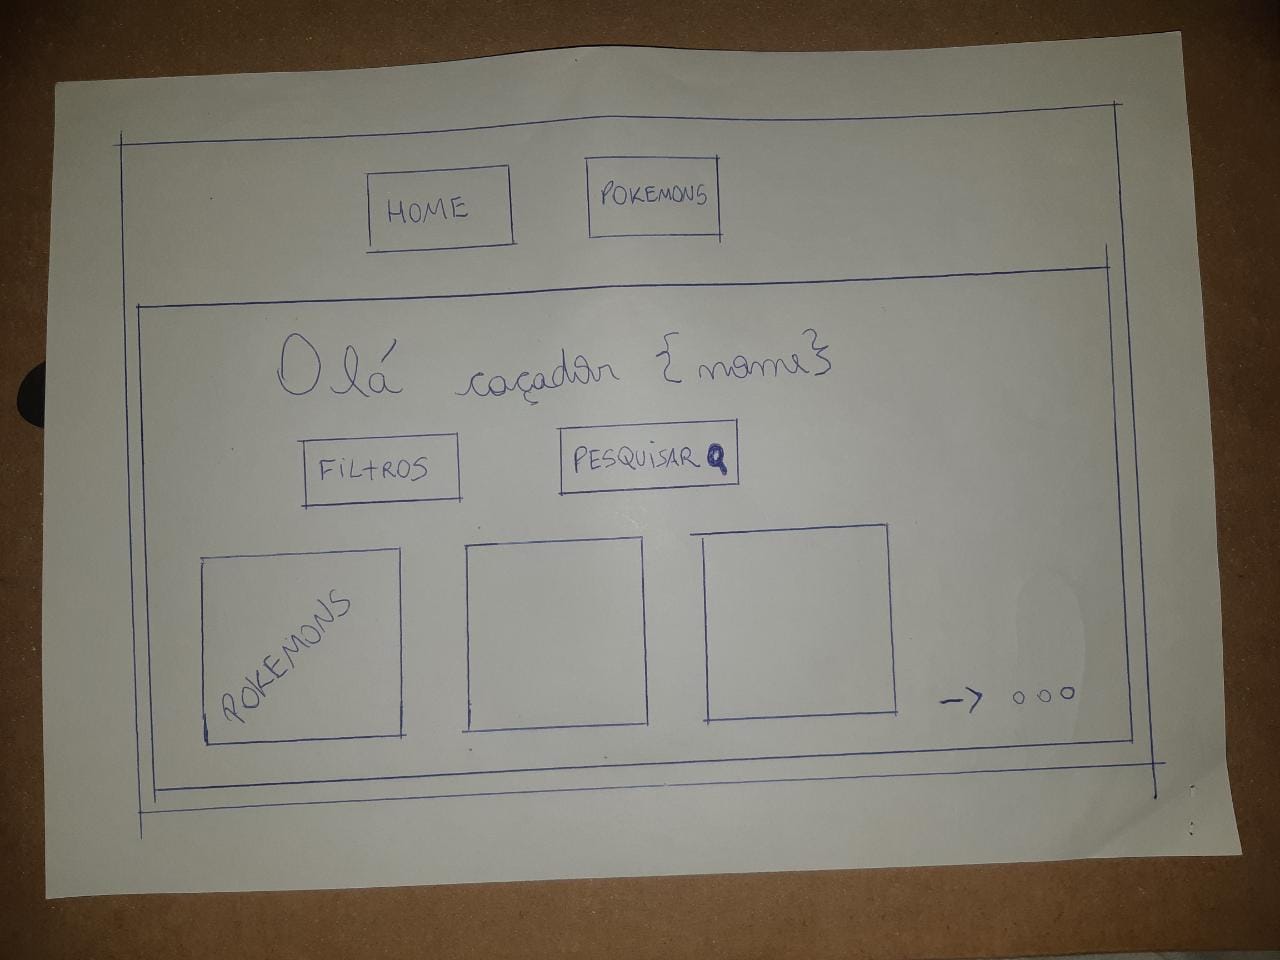 HOME POKEMONS
Olá caçador {nome}
FILTROS PESQUISAR
POKEMONS